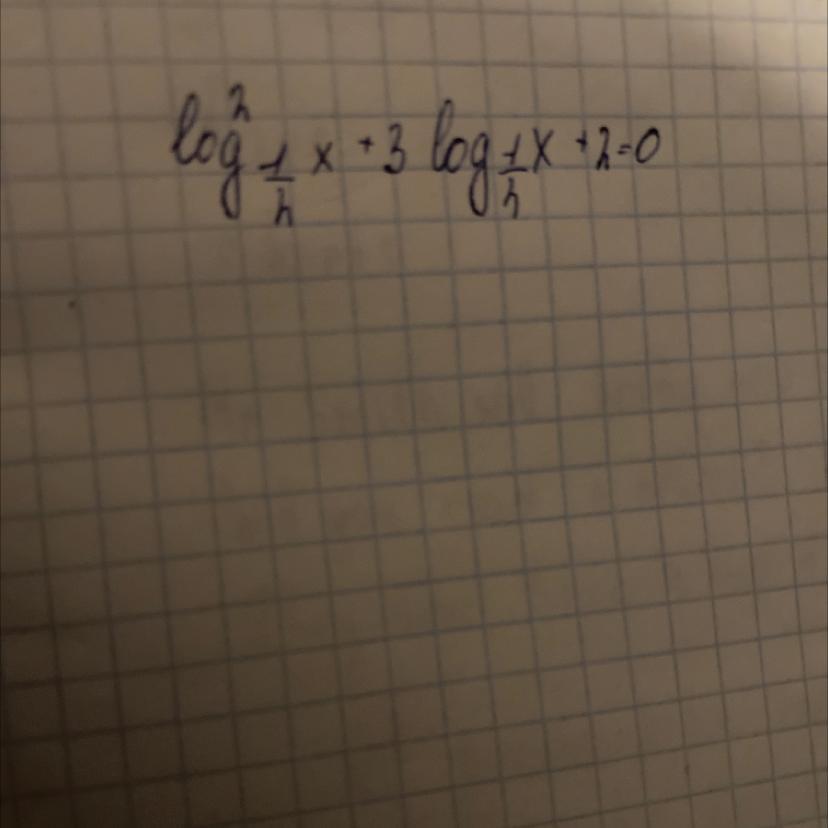 log²_{1/2} x + 3 log_{1/2} x + 2 = 0